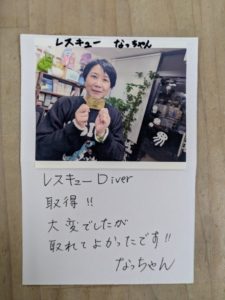 レスキュー なっちゃん
レスキューDiver
取得!!
大変でしたが
取れてよかったです!!
なっちゃん